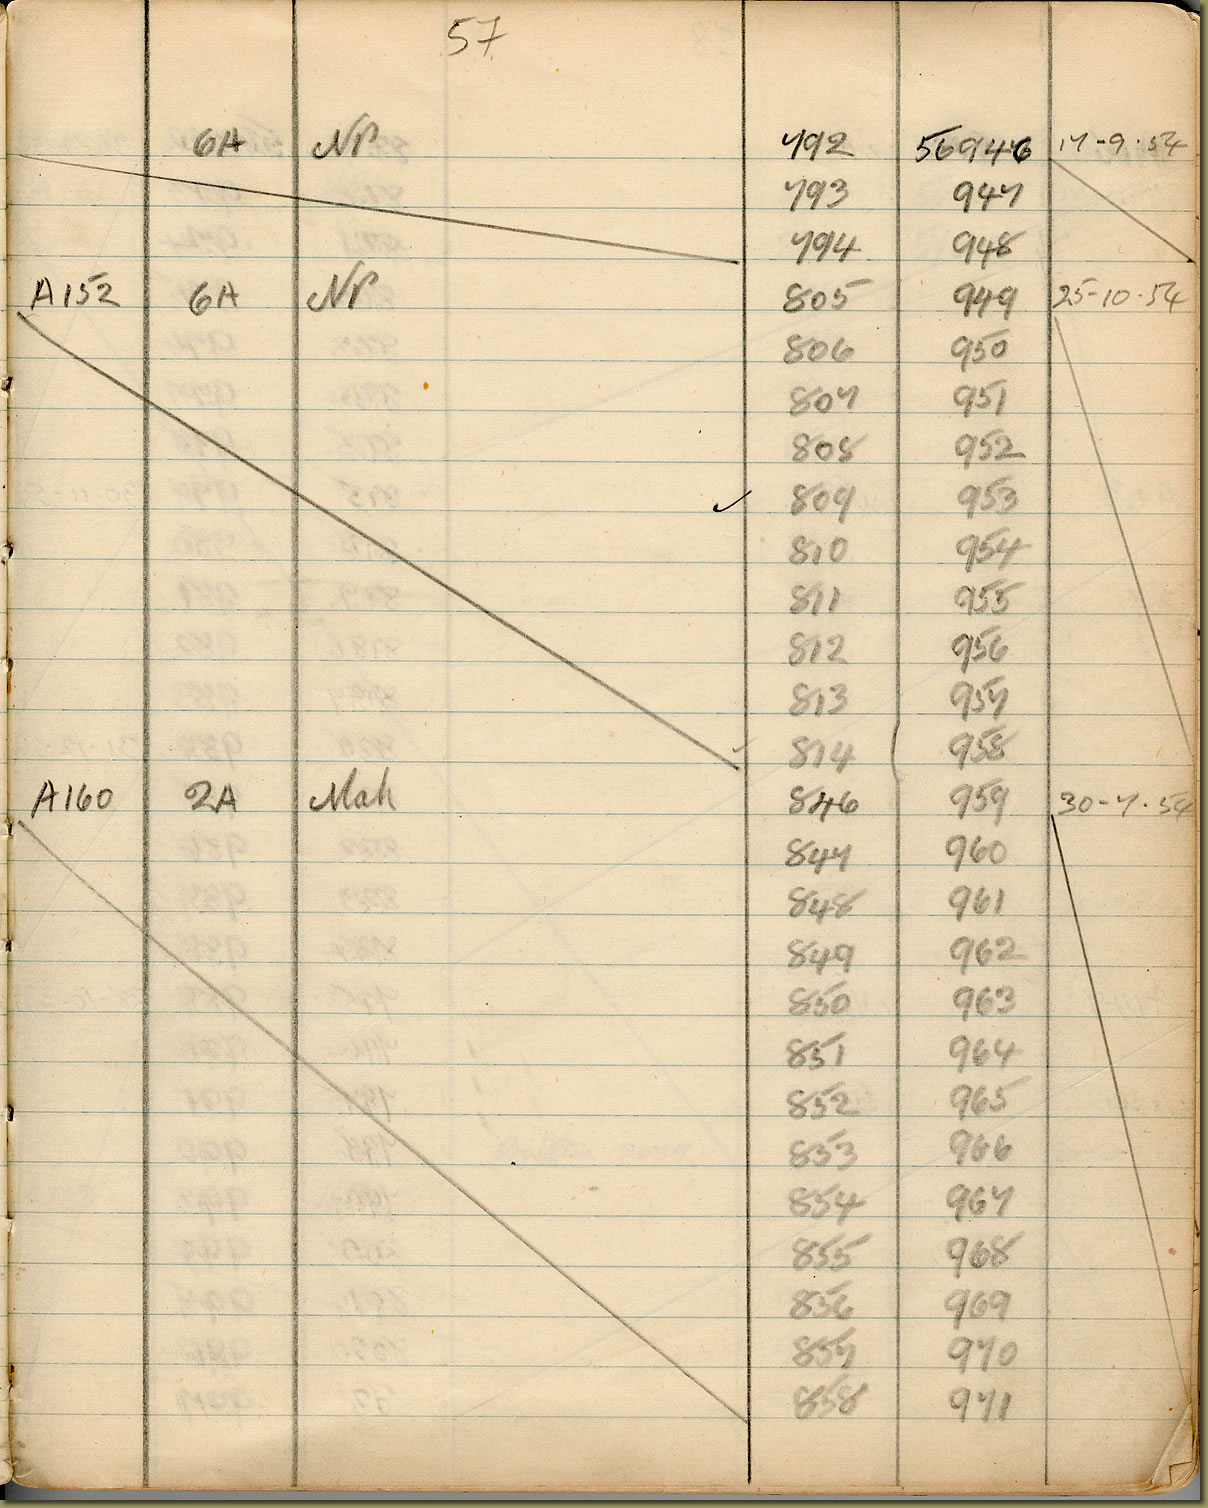 57
6A NP 792 56946 17-9-54
793 947
794 948
A152 6A NP 805 949 25-10-54
806 950
807 951
808 952
809 953
810 954
811 955
812 956
813 957
814 958
A160 2A Mah 846 959 30-7-54
847 960
848 961
849 962
850 963
851 964
852 965
853 966
854 967
855 968
856 969
857 970
858 971